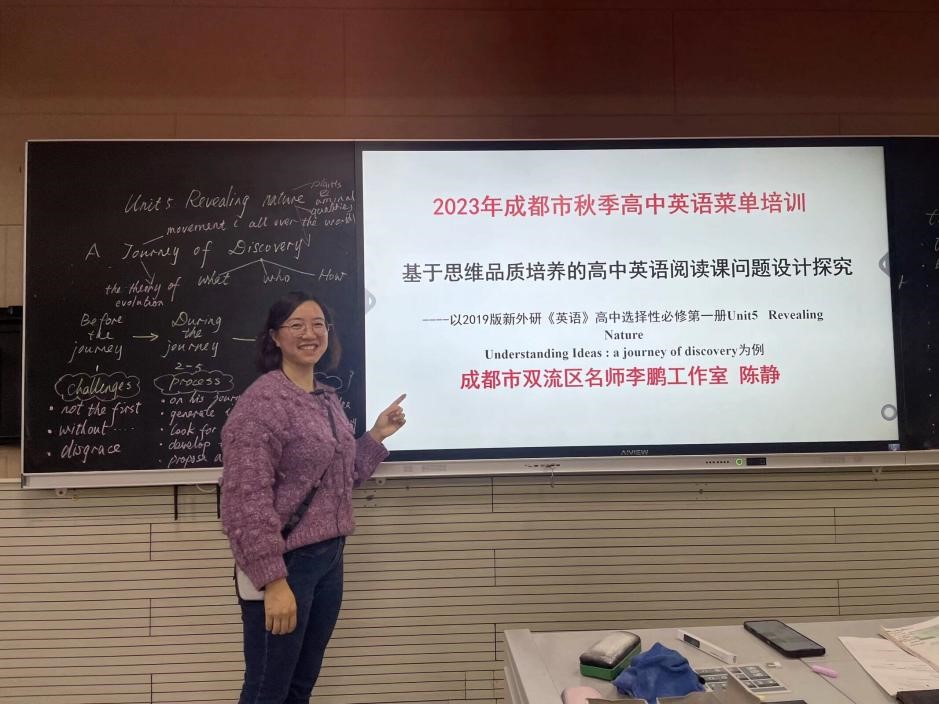 Unit 5 Revealing nature
plants
&
animal
qualities
movement all over the world
A Journey of Discovery
the theory of
evolution
what who How
Before
the
journey
During
the
journey
2-5
challenges
process
• not the first
• without ....
• disgrace
• on his jour
• generate
• look for
• develop
propose a
2023年成都市秋季高中英语菜单培训
基于思维品质培养的高中英语阅读课问题设计探究
----以2019版新外研《英语》高中选择性必修第一册Unit5 Revealing
Nature
Understanding Ideas : a journey of discovery为例
成都市双流区名师李鹏工作室 陈静